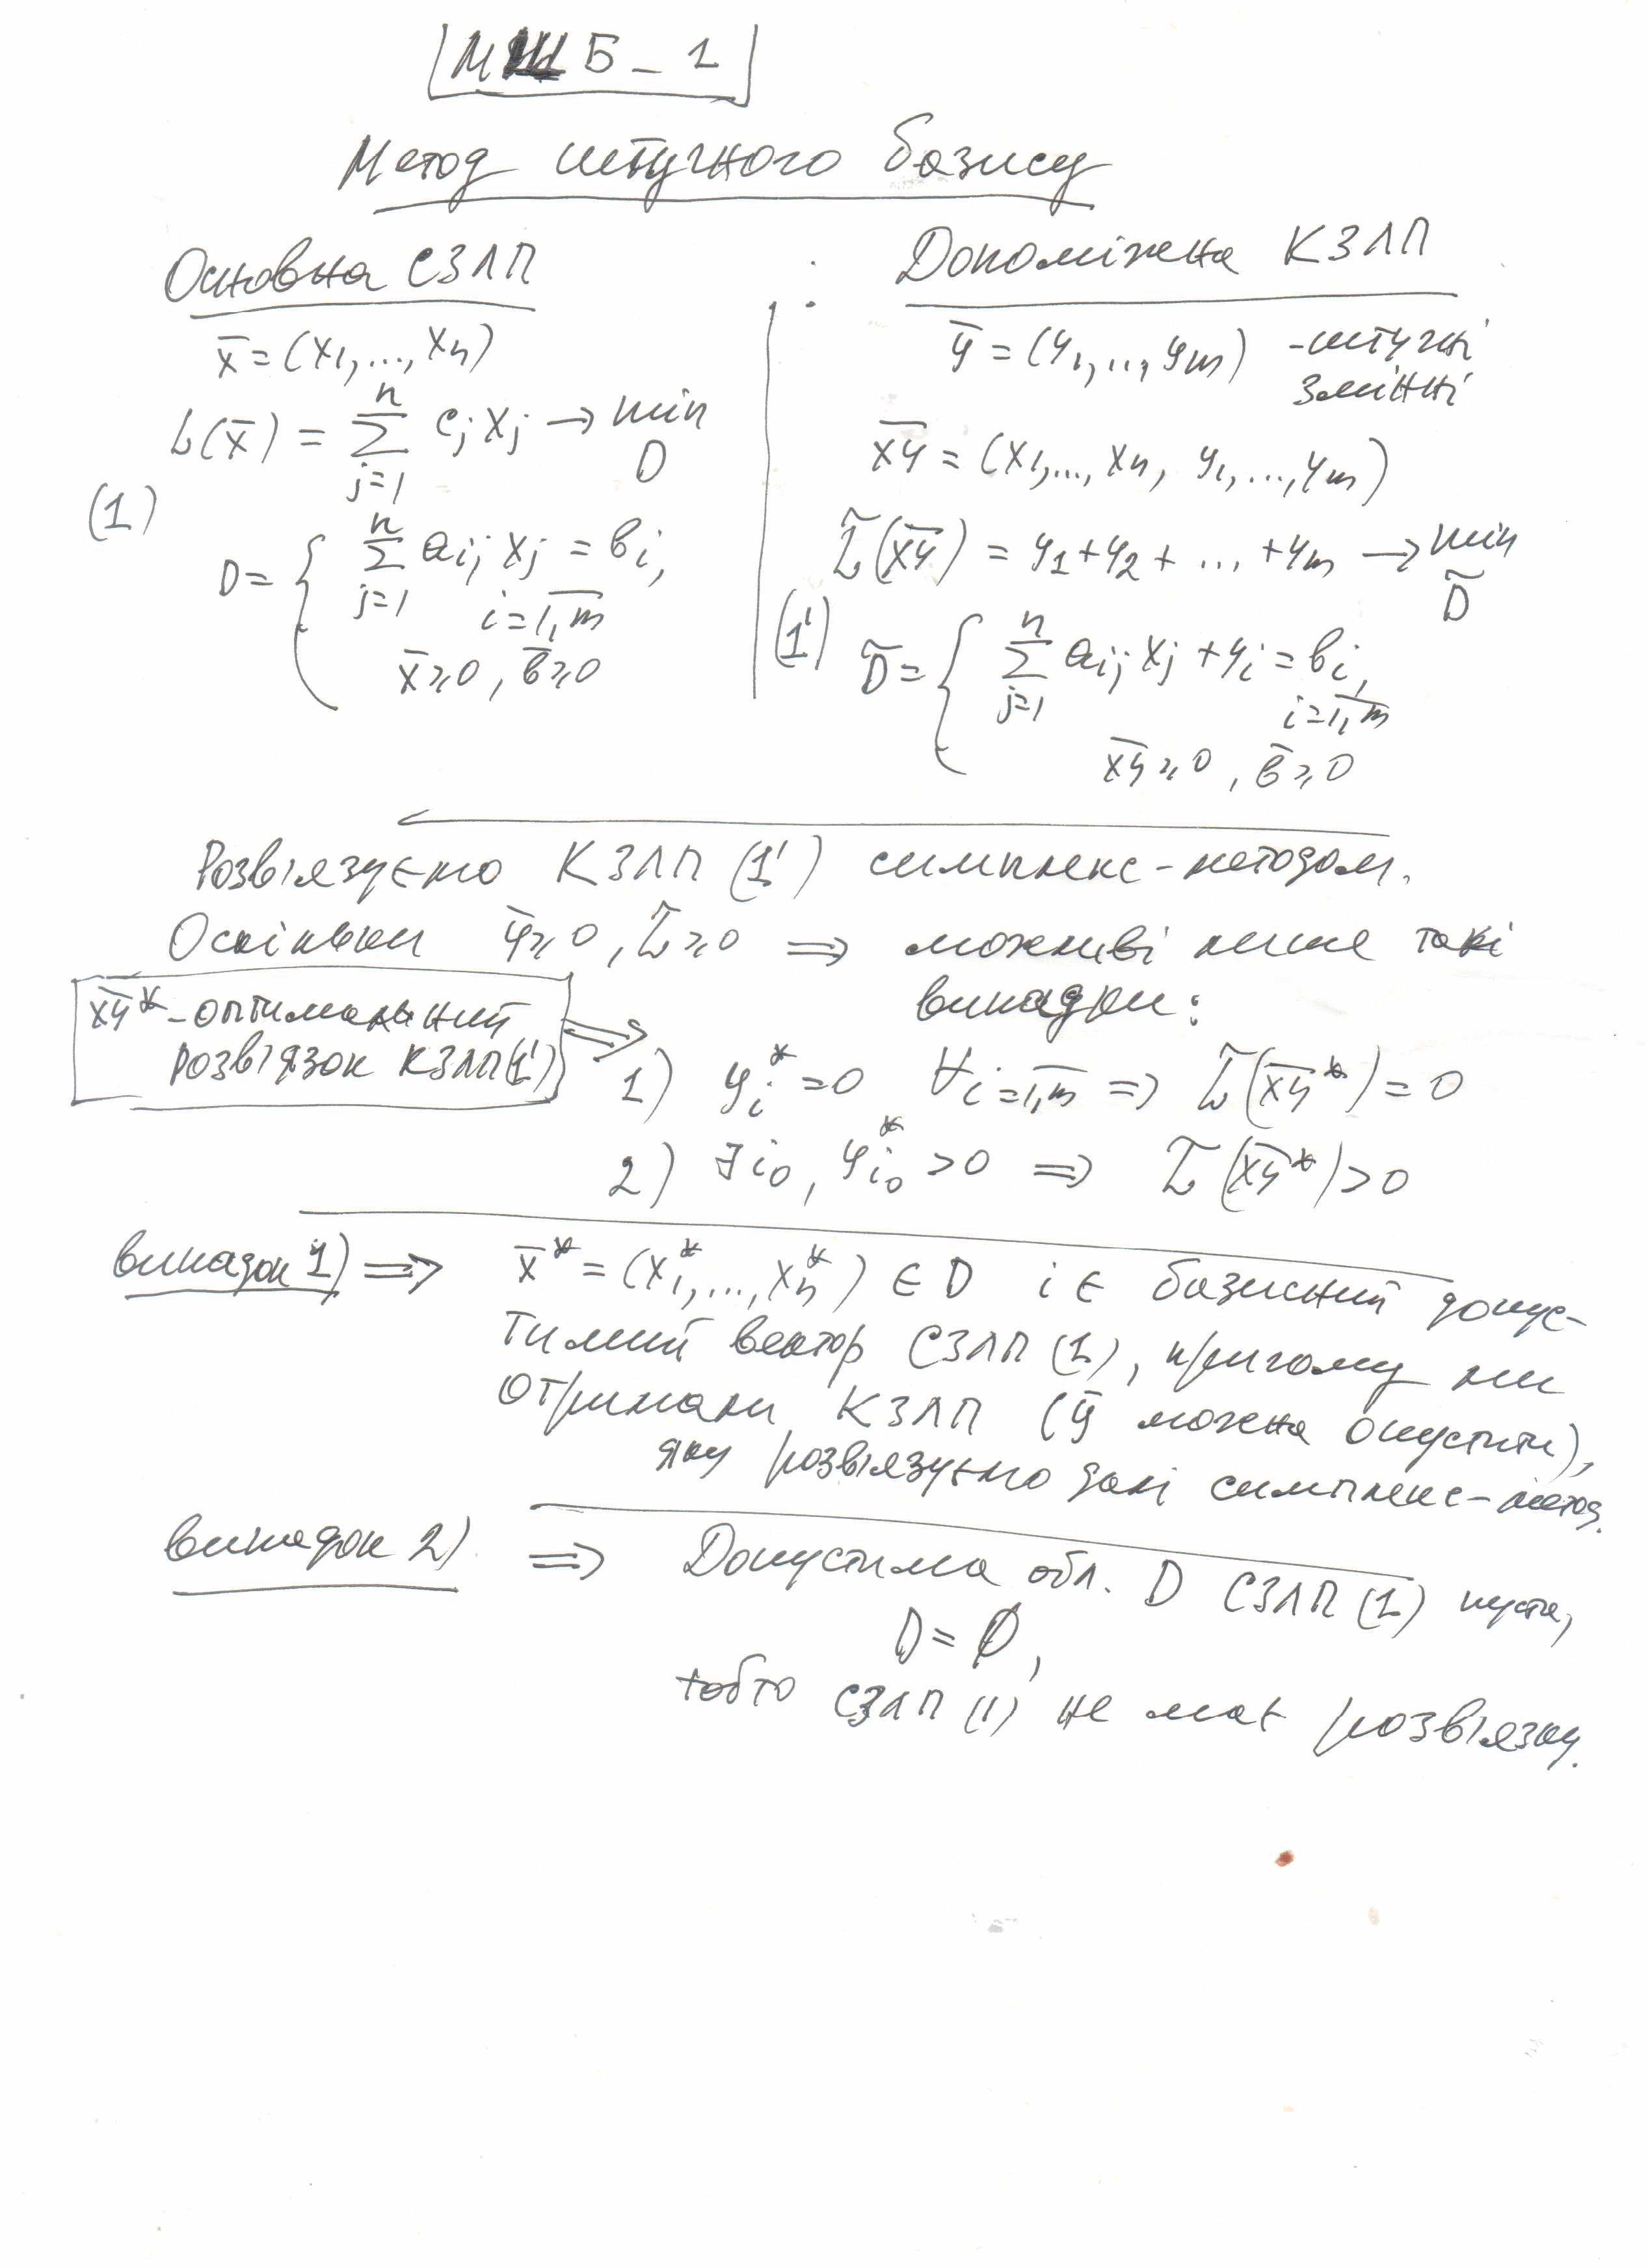 МШБ-1
Метод штучного базису
Основна СЗЛП
x̄ = (x₁,...,xₙ)
L(x̄) = ∑_{j=1}^{n} c_j x_j → min
D
(1)
D = { ∑_{j=1}^{n} a_{ij} x_j = b_i,
i = 1,m
x̄ ≥ 0, b̄ ≥ 0
Допоміжна КЗЛП
ȳ = (y₁,...,yₘ) - штучні
змінні
x̄ȳ = (x₁,...,xₙ, y₁,...,yₘ)
L̃(x̄ȳ) = y₁+y₂+...+yₘ → min
D̃
(1')
D̃ = { ∑_{j=1}^{n} a_{ij} x_j + y_i = b_i,
i = 1,m
x̄ȳ ≥ 0, b̄ ≥ 0
Розв'язуємо КЗЛП (1') симплекс-методом.
Оскільки ȳ ≥ 0, L̃ ≥ 0 ⇒ можливі лише такі
випадки:
x̄ȳ* - оптимальний
розв'язок КЗЛП(1') ⇒
1) y_i* = 0 ∀ i = 1,m ⇒ L̃(x̄ȳ*) = 0
2) ∃ i₀, y_{i₀}* > 0 ⇒ L̃(x̄ȳ*) > 0
випадок 1) ⇒ x̄* = (x₁*,...,xₙ*) ∈ D і є базисний допус-
тимий вектор СЗЛП (1), причому ми
отримали КЗЛП (ȳ можна опустити),
яку розв'язуємо далі симплекс-метод.
випадок 2) ⇒ Допустима обл. D СЗЛП (1) пуста,
D = ∅,
тобто СЗЛП (1) не має розв'язку.